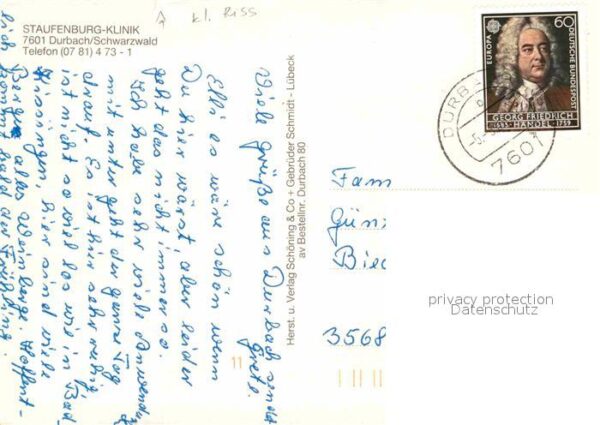 kl. Riss
STAUFENBURG-KLINIK
7601 Durbach/Schwarzwald
Telefon (07 81) 4 73 - 1
Viele Grüße aus Durbach sendet
Grete.
Elli es wäre schön wenn
Du hier wärst, aber leider
geht das nicht immer so.
Ich habe sehr viele Anwendun
mitunter geht der ganze Tag
drauf. Es ist hier sehr ruhig,
ist nicht so viel los wie in Bad
Kissingen, hier sind viele
Berge alles Weinberge. Hoffent-
lich kommt bald der Frühling.
Herst. u. Verlag Schöning & Co + Gebrüder Schmidt - Lübeck
av Bestellnr. Durbach 80
EUROPA
60
DEUTSCHE BUNDESPOST
GEORG FRIEDRICH
1685 HÄNDEL 1759
DURB
7601
Fam
Gün
Bie
3568
11
privacy protection
Datenschutz